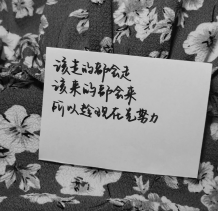 该走的都会走
该来的都会来
所以趁现在多努力